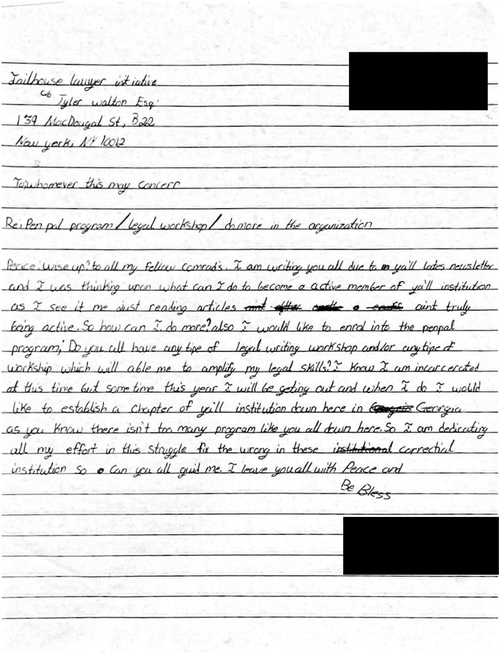 Jailhouse lawyer initiative
c/o Tyler walton Esq.
139 MacDougal St, B22
New york, NY 10012
To whomever this may concern
Re: Pen pal program / legal workshop / do more in the organization
Peace: wise up? to all my fellow comrad's. I am writing you all due to ya'll lates newsletter
and I was thinking upon what can I do to become a active member of ya'll institution
as I see it me Just reading articles aint truly
being active. So how can I do more? also I would like to enrol into the penpal
program; Do you all have any tipe of legal writing workshop and/or any tipe of
workship which will able me to amplify my legal skills? I Know I am incarcerated
at this time but some time this year I will be geting out and when I do I would
like to establish a chapter of ya'll institution down here in Georgia
as you Know there isn't too many program like you all down here. So I am dedicating
all my effort in this struggle fix the wrong in these institutional correctial
institution so can you all guid me. I leave you all with Peace and
Be Bless